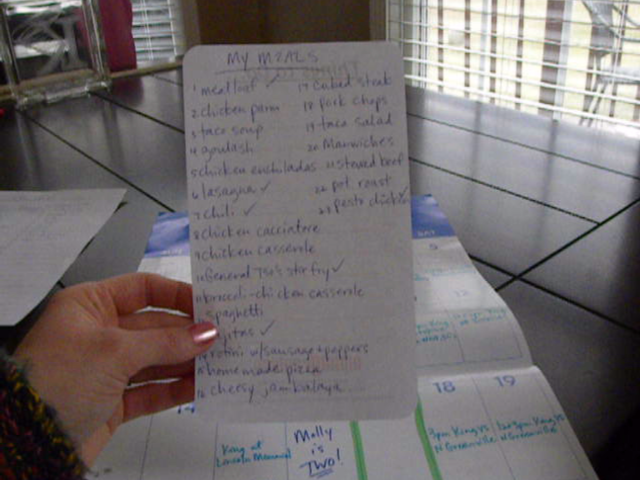 My MEALS
1 meatloaf ✓
2 chicken parm
3 taco soup
4 goulash
5 chicken enchiladas
6 lasagna ✓
7 chili ✓
8 chicken cacciatore
9 chicken casserole
10 General Tso's stir fry ✓
11 broccoli-chicken casserole
spaghetti
fajitas ✓
14 rotini w/sausage + peppers
15 homemade pizza
16 cheesy jambalaya
17 cubed steak
18 Pork chops
19 taco salad
20 Manwiches
21 stewed beef
22 pot roast
23 pesto chicken ✓
SAT
5
12
18
19
Molly
is
Two!
King at
3pm King vs
N Greenville
King vs
N Greenville